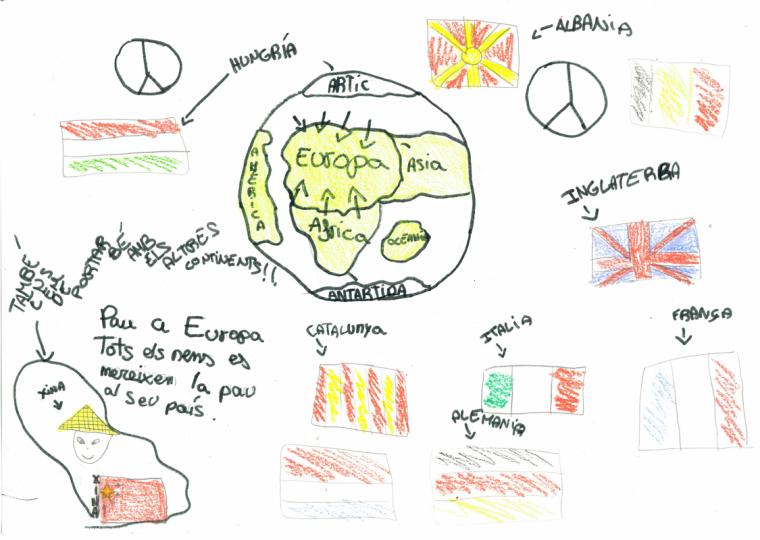 HUNGRÍA
ALBANIA
ARTIC
AMÈRICA
Europa
Àsia
Africa
OCEANIA
ANTARTIDA
INGLATERRA
TAMBÉ
PORTAR
BÉ
AMB
ELS
ALTRES
CONTINENTS!!
Pau a Europa
Tots els nens es
mereixen la pau
al seu país.
CATALUNYA
ITALIA
FRANÇA
ALEMANÍA
XINA
XINA